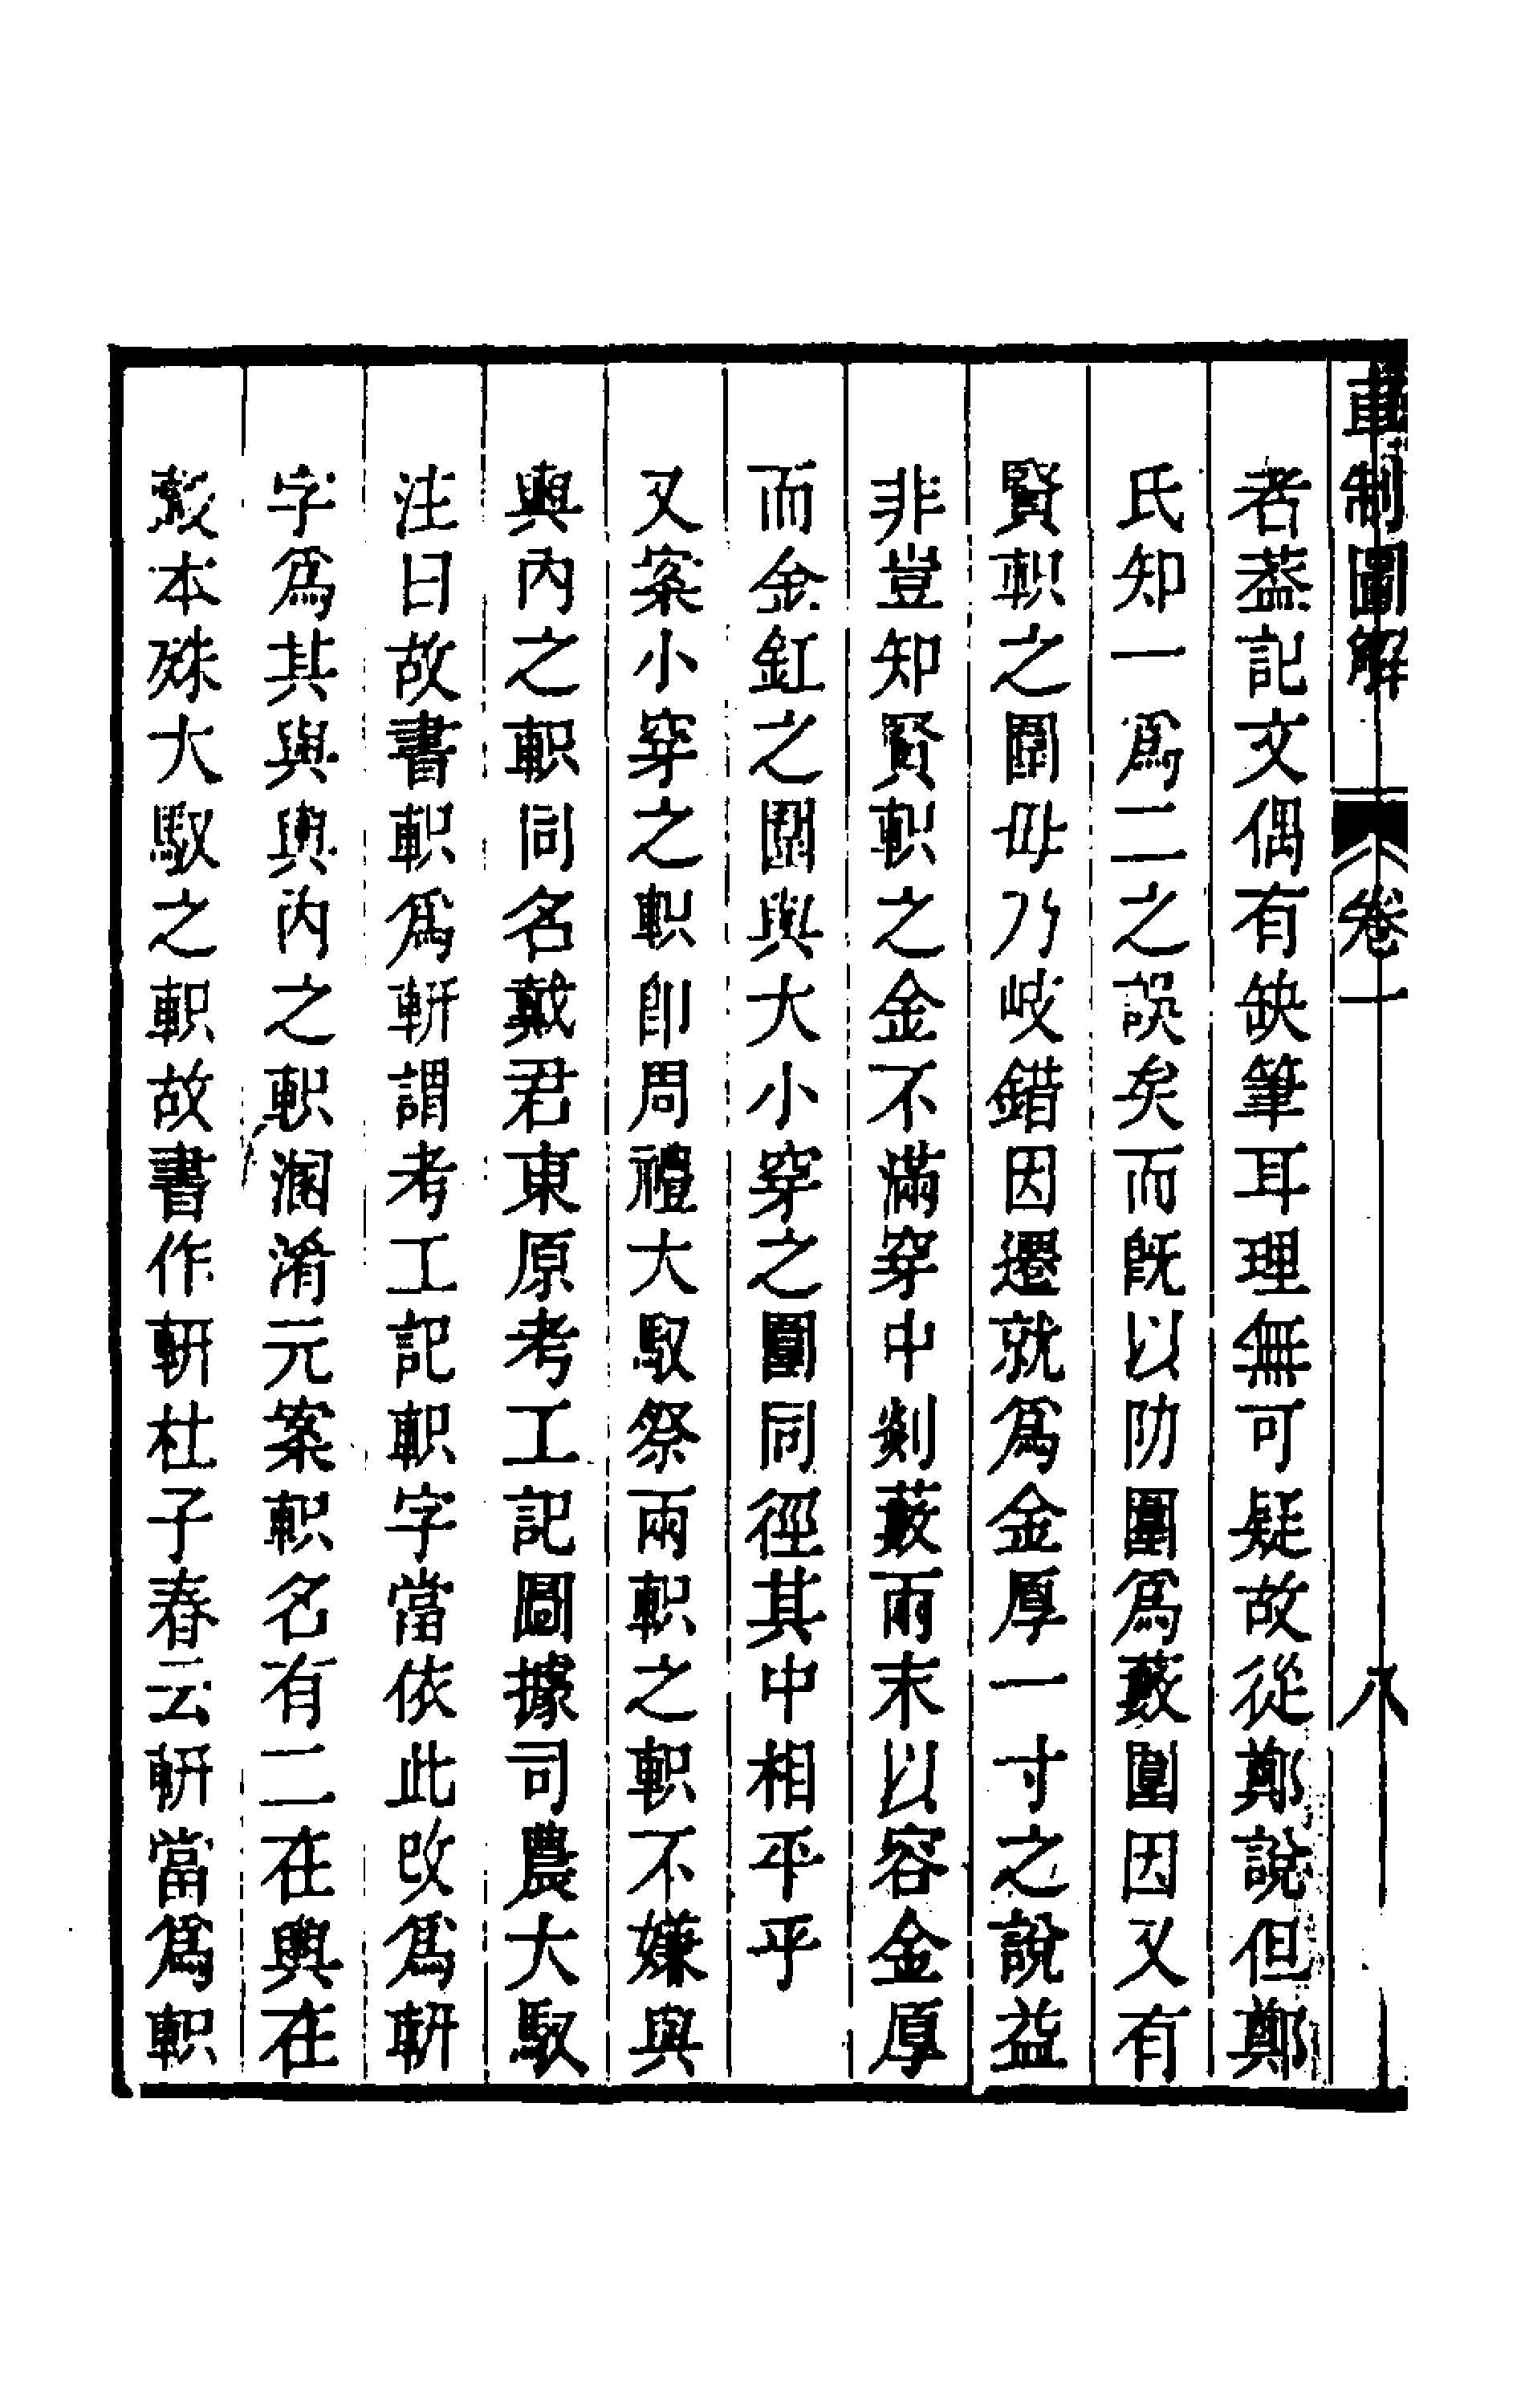 車制圖解 卷一 八
者葢記文偶有缺筆耳理無可疑故從鄭說但鄭
氏知一爲二之誤矣而旣以防圍爲藪圍因又有
賢軹之圍毋乃岐錯因遷就爲金厚一寸之說益
非豈知賢軹之金不滿穿中剡藪兩末以容金厚
而金釭之圍與大小穿之圍同徑其中相平乎
又案小穿之軹卽周禮大馭祭兩軹之軹不嫌與
輿內之軹同名戴君東原考工記圖據司農大馭
注曰故書軹爲軿謂考工記軹字當依此改爲軿
字爲其與輿內之軹溷淆元案軹名有二在輿在
轂本殊大馭之軹故書作軿杜子春云軿當爲軹